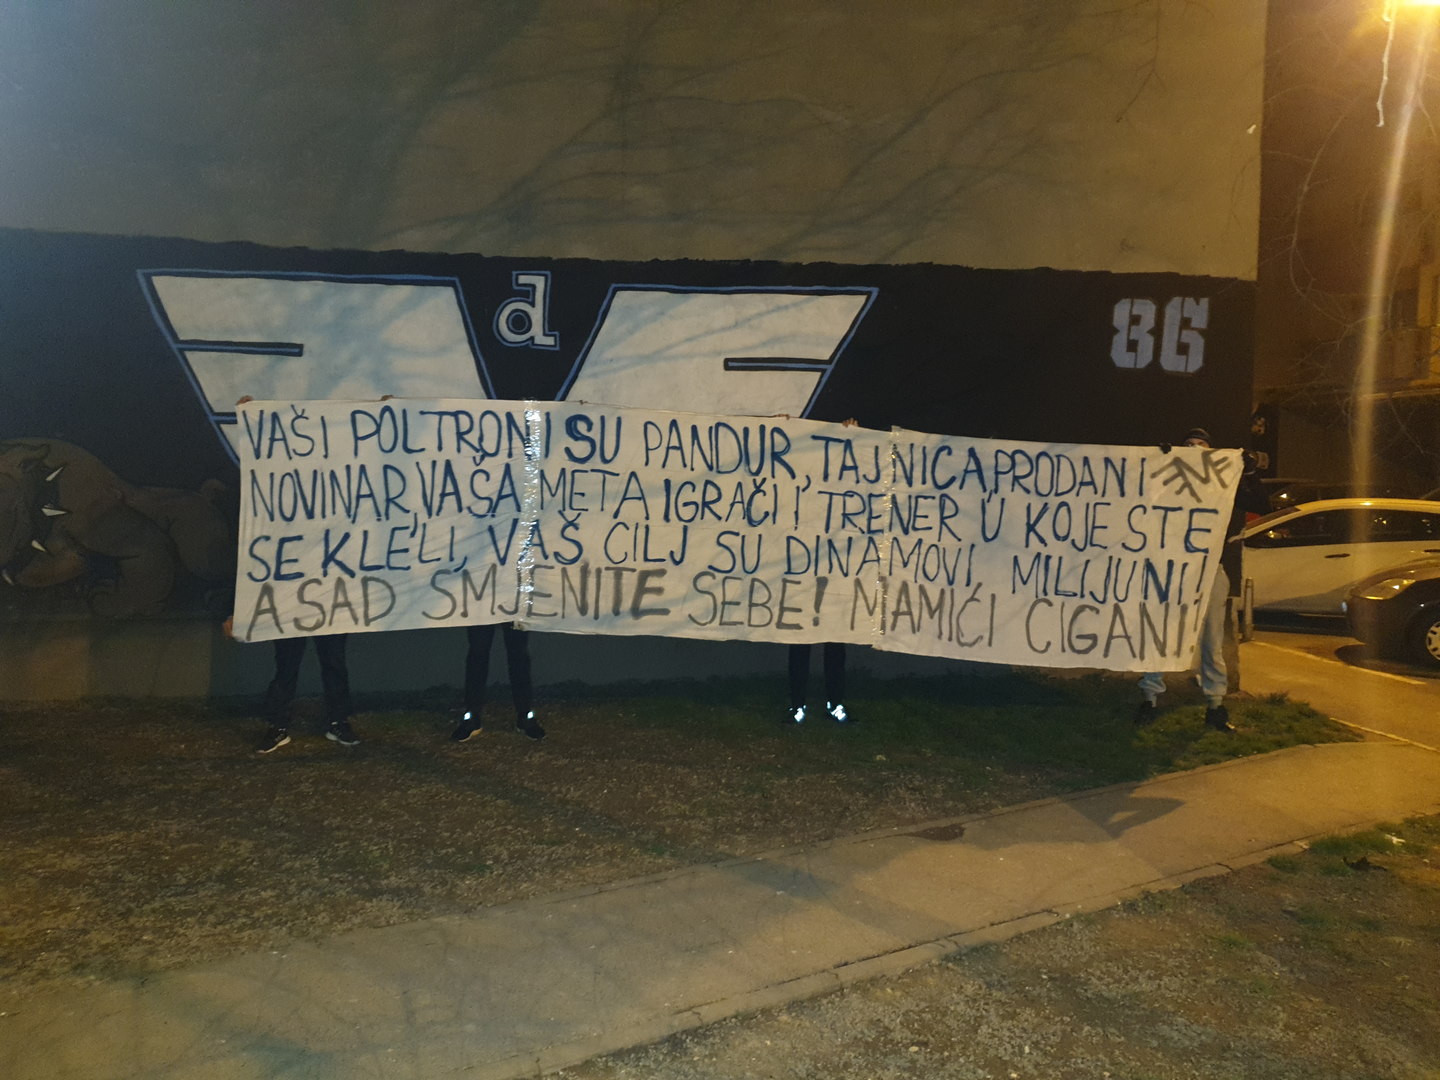 d
86
VAŠI POLTRONI SU PANDUR, TAJNICA, PRODANI
NOVINAR, VAŠA META IGRAČI I TRENER U KOJE STE
SE KLELI, VAŠ CILJ SU DINAMOVI MILIJUNI!
A SAD SMJENITE SEBE! MAMIĆI CIGANI!